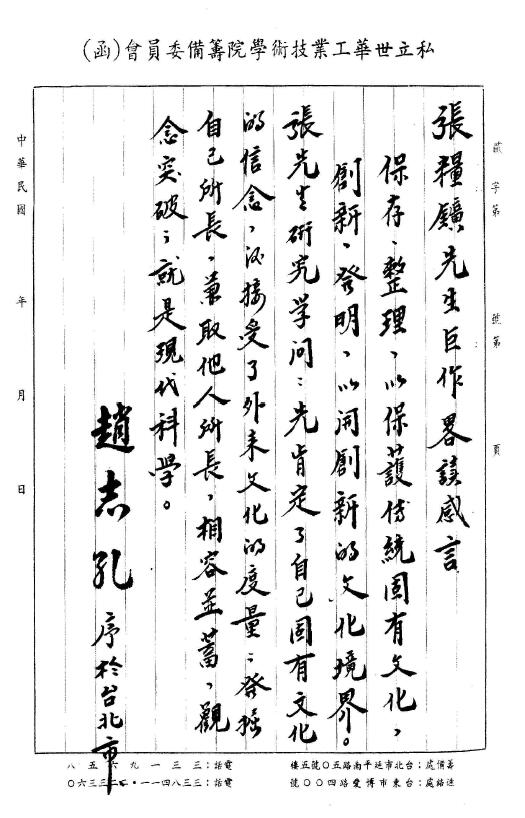 私立世華工業技術學院籌備委員會(函)
字第　號第　頁
張糧鑛先生巨作畧讀感言
保存、整理、以保護傳統固有文化,
創新、發明、以開創新的文化境界。
張先生研究学问:先肯定了自己固有文化
的信念,接受了外来文化的度量;發掘
自己所長,兼取他人所長,相容並蓄,觀
念突破;就是現代科學。
趙志孔 序於台北市
中華民國　年　月　日
籌備處:台北市延平南路五〇號五樓　電話:三三一九六五八
連絡處:台東市博愛路四〇〇號　電話:三三八四一一・二二三三六〇